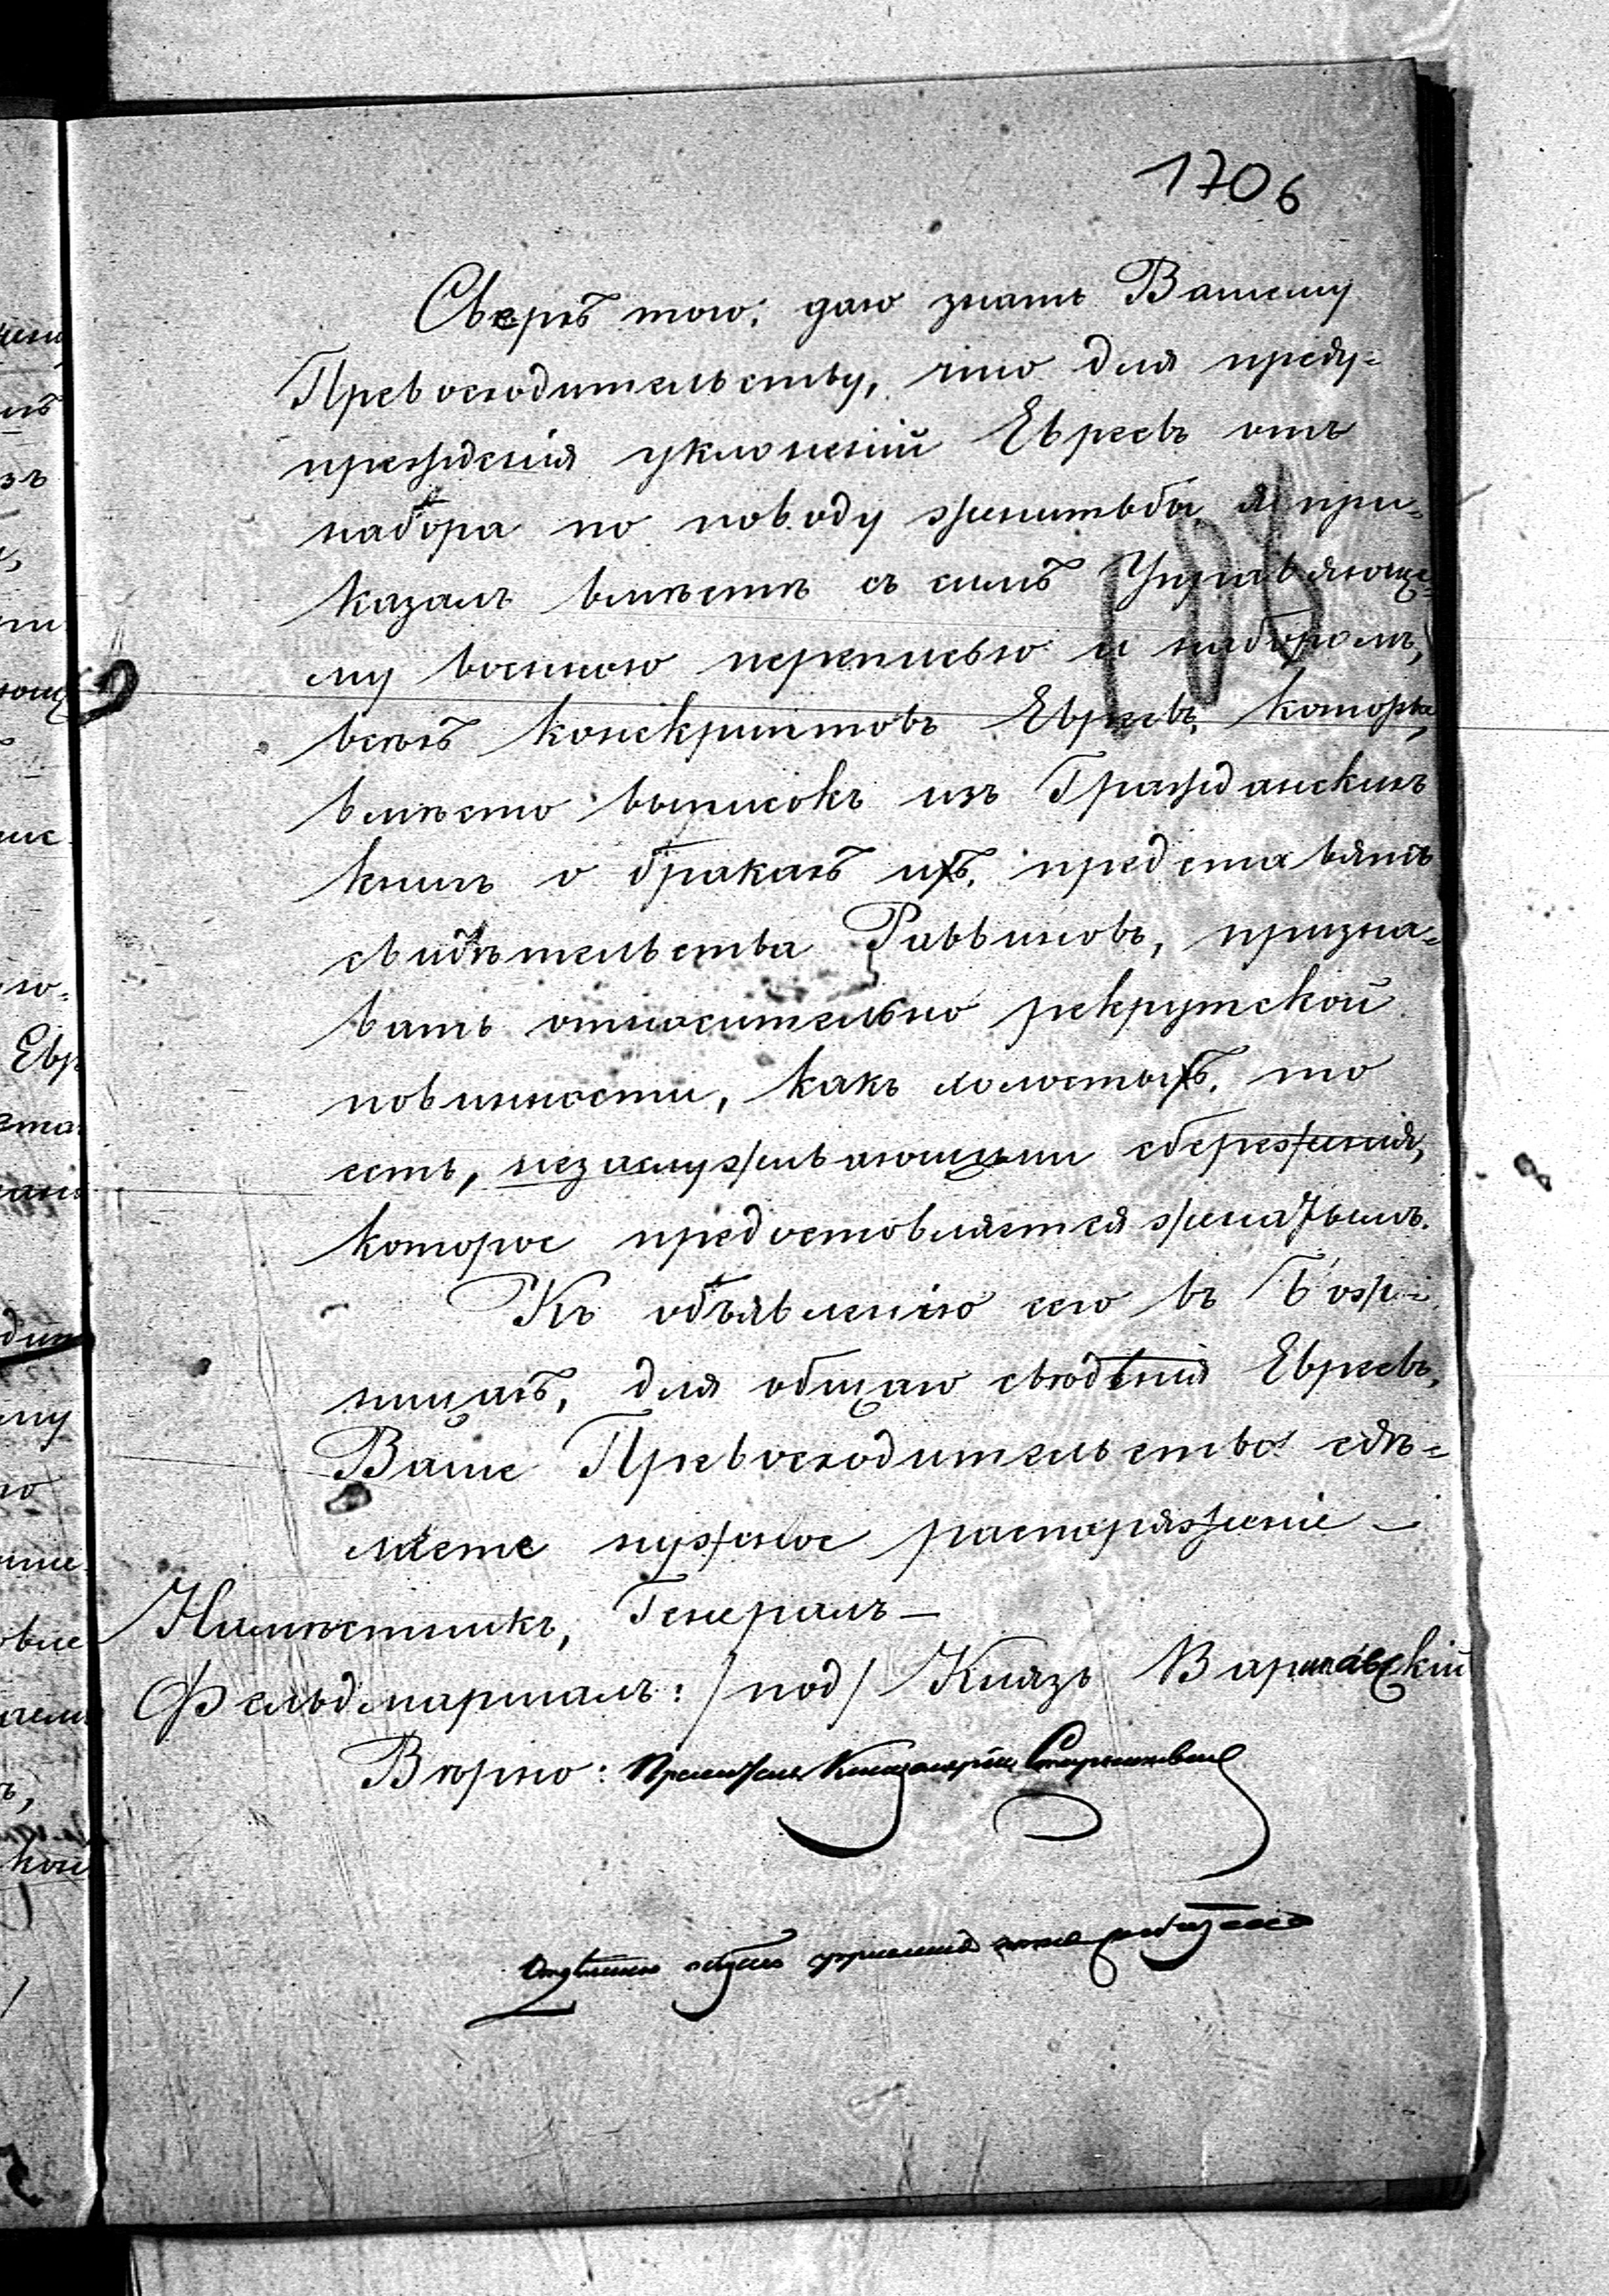 1706
Сверхъ того, даю знать Вашему
Превосходительству, что для преду-
прежденія уклоненій Евреевъ отъ
набора по поводу женитьбы я при-
казалъ вмѣстѣ съ симъ Управляюще-
му военною переписью и наборомъ,
всѣхъ конскриптовъ Евреевъ, которые,
вмѣсто выписокъ изъ Гражданскихъ
книгъ о бракахъ ихъ, представятъ
свидѣтельства Раввиновъ, призна-
вать относительно рекрутской
повинности, какъ холостыхъ, то
есть, незаслуживающими сбереженія,
которое предоставляется женатымъ.
Къ объявленію сего въ Бож-
ницахъ, для общаго свѣдѣнія Евреевъ,
Ваше Превосходительство сдѣ-
лаете нужное распоряженіе —
Намѣстникъ, Генералъ —
Фельдмаршалъ: /под/ Князь Варшавскій
Вѣрно: Правитель Канцеляріи